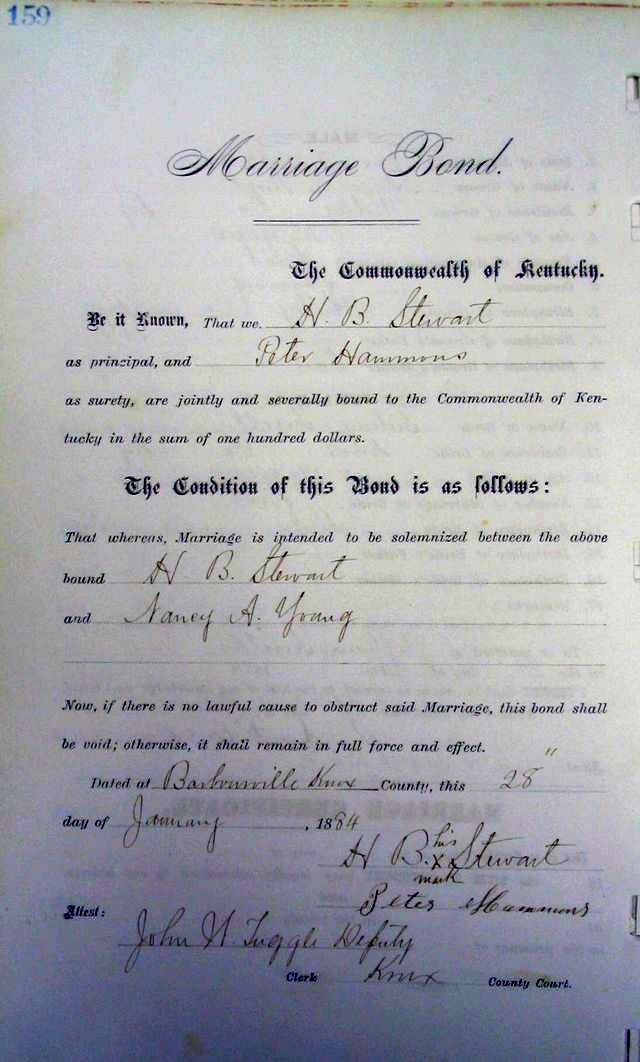 159
Marriage Bond.
The Commonwealth of Kentucky.
Be it Known, That we H. B. Stewart
as principal, and Peter Hammons
as surety, are jointly and severally bound to the Commonwealth of Ken-
tucky in the sum of one hundred dollars.
The Condition of this Bond is as follows:
That whereas, Marriage is intended to be solemnized between the above
bound H. B. Stewart
and Nancy A. Young
Now, if there is no lawful cause to obstruct said Marriage, this bond shall
be void; otherwise, it shall remain in full force and effect.
Dated at Barbourville Knox County, this 28"
day of January, 1884
H B. his x Stewart
mark
Peter Hammons
Attest:
John Tuggle Deputy
Clerk Knox County Court.